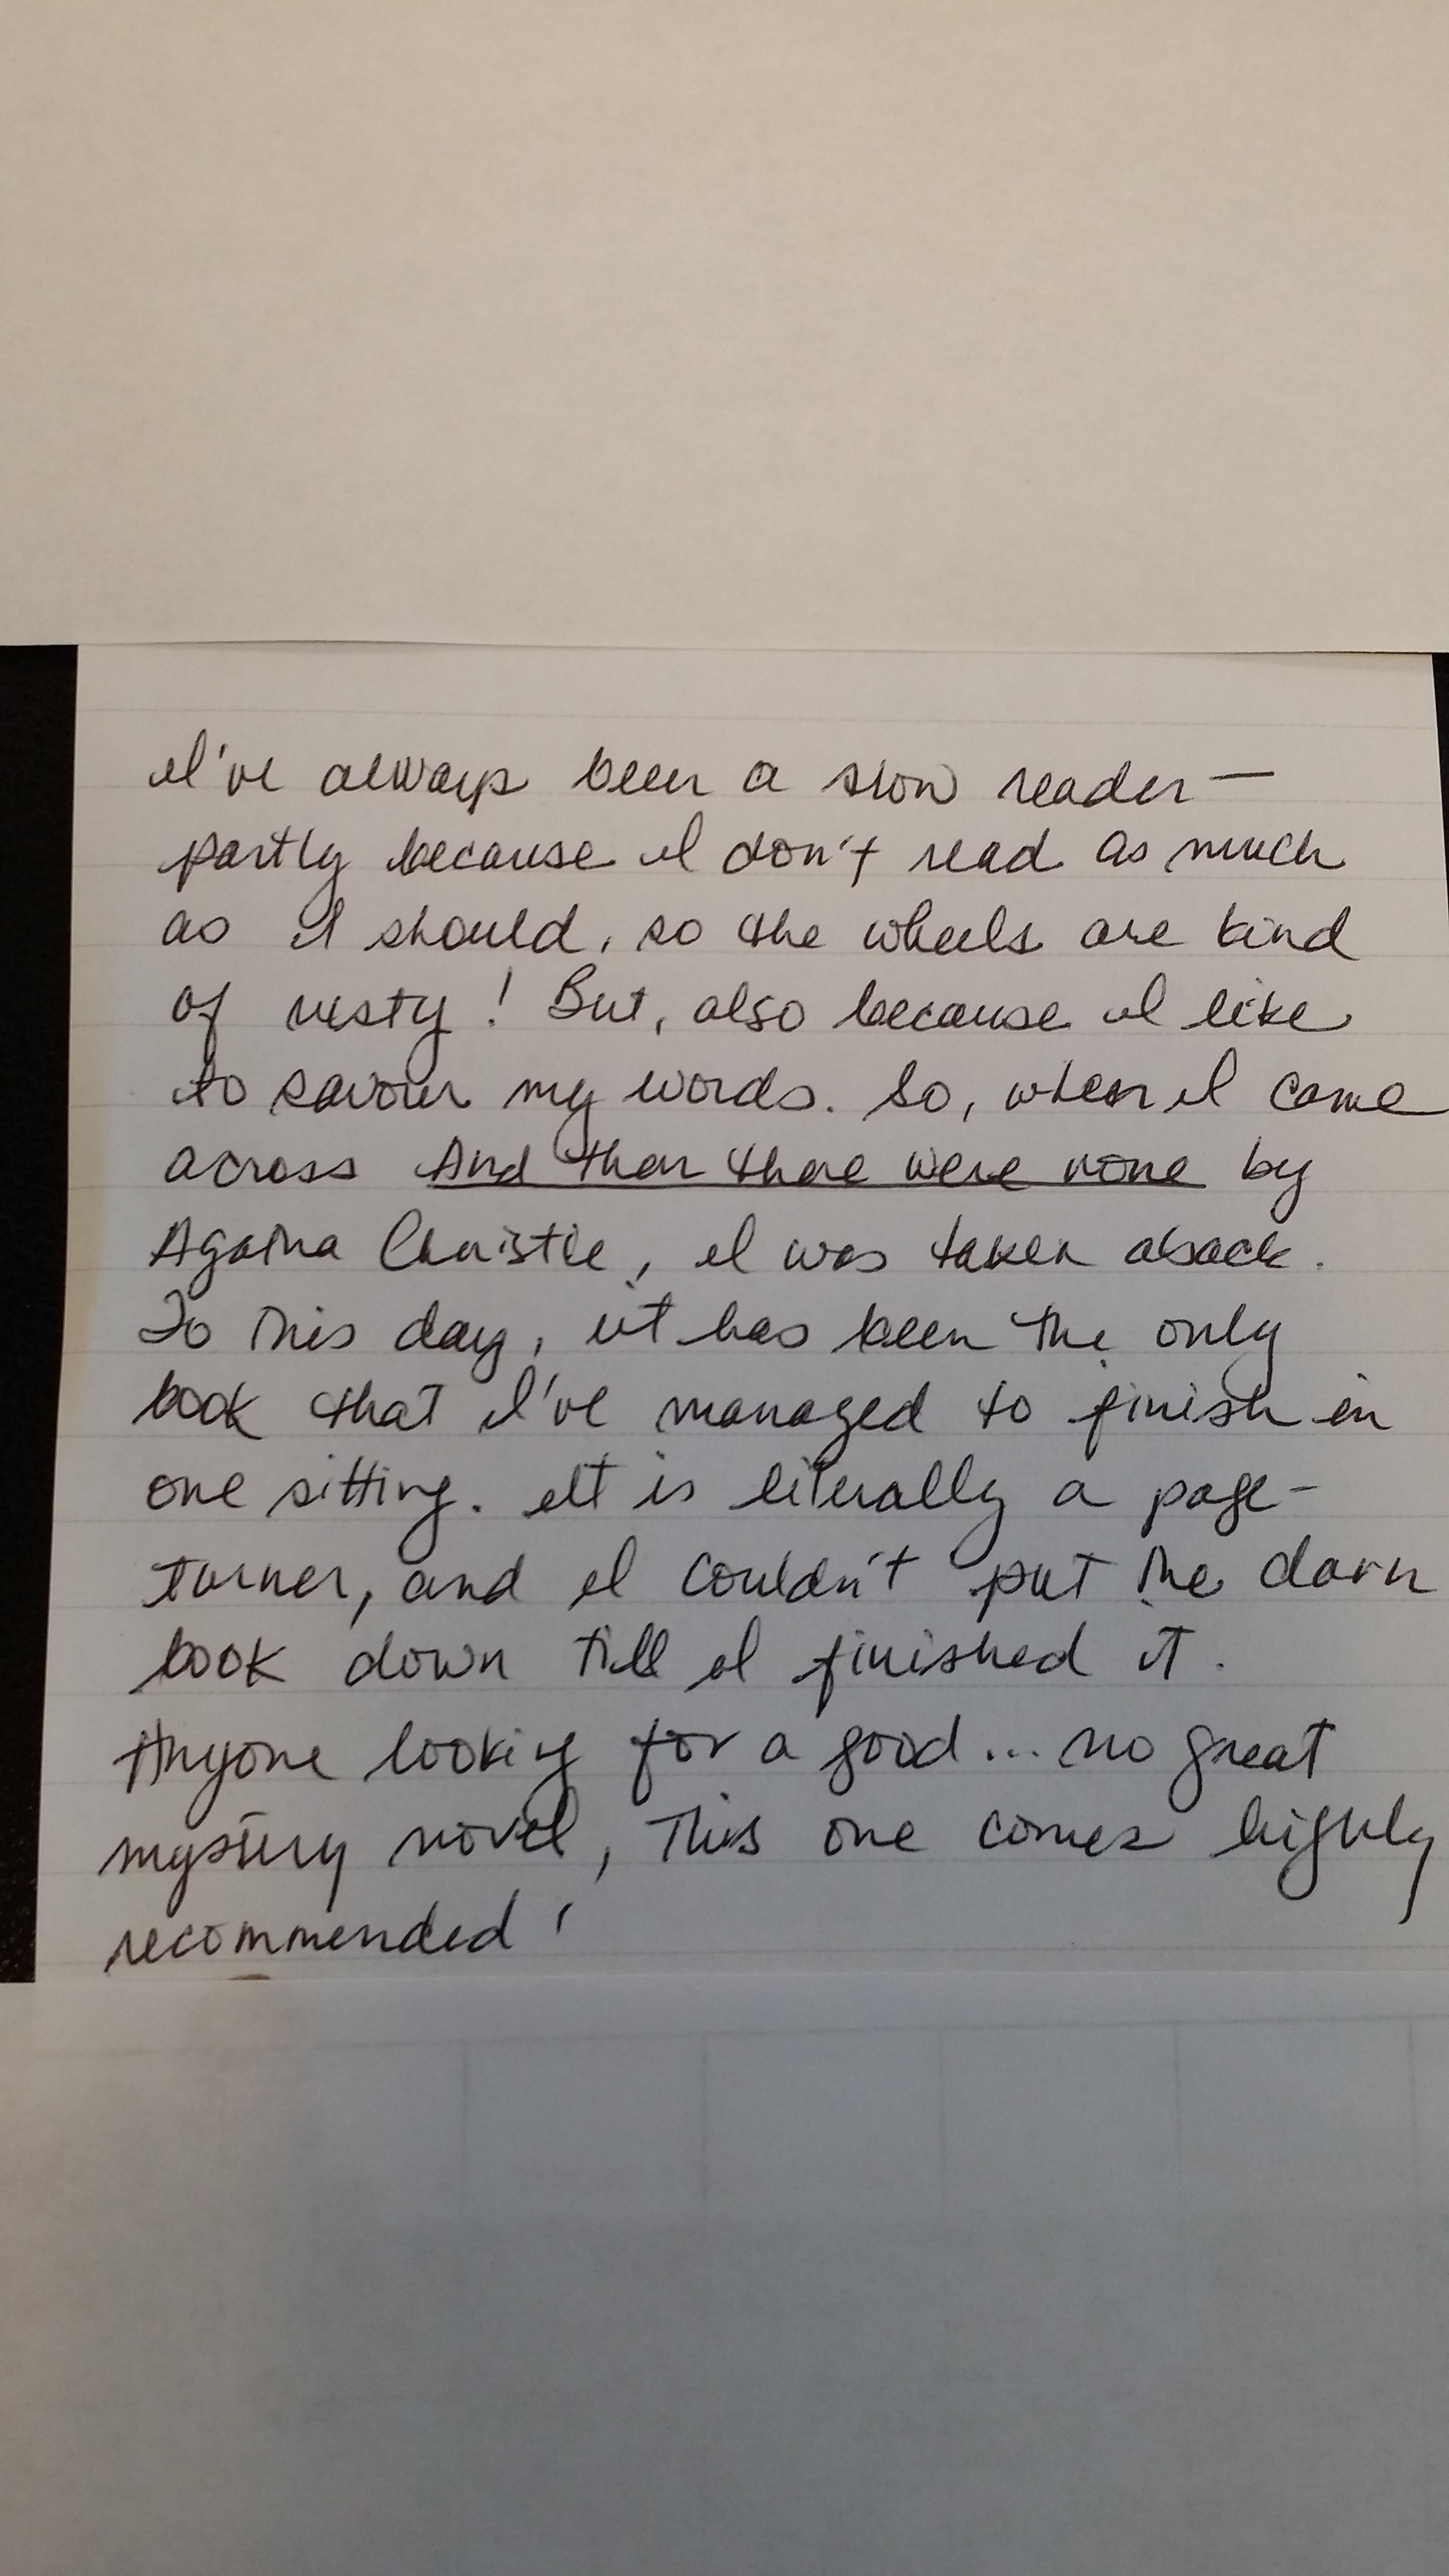 I've always been a slow reader —
partly because I don't read as much
as I should, so the wheels are kind
of rusty! But, also because I like
to savour my words. So, when I came
across And then there were none by
Agatha Christie, I was taken aback.
To this day, it has been the only
book that I've managed to finish in
one sitting. It is literally a page-
turner, and I couldn't put the darn
book down till I finished it.
Anyone looking for a good... no great
mystery novel, this one comes highly
recommended!